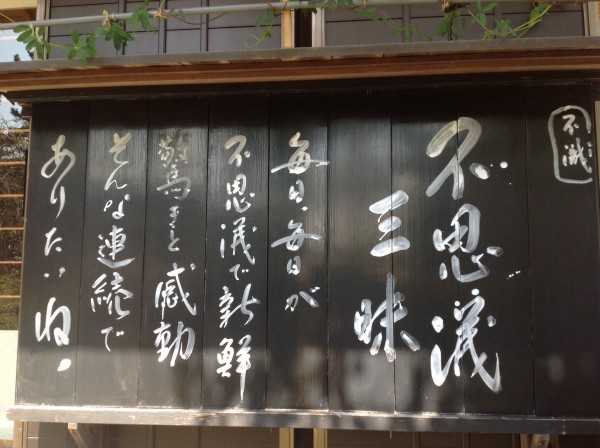 不滅
不思議
三昧
毎日、毎日が
不思議で新鮮
驚きと感動
そんな連続で
ありたいね、